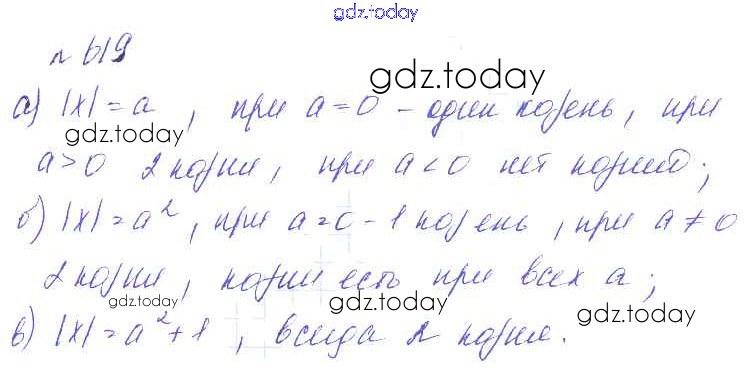 gdz.today
№ 619
gdz.today
а) |x| = a, при a = 0 - один корень, при
gdz.today
a > 0 2 корня, при a < 0 нет корней;
б) |x| = a², при a = 0 - 1 корень, при a ≠ 0
2 корня, корни есть при всех a;
gdz.today gdz.today
в) |x| = a² + 1, всегда 2 корня.